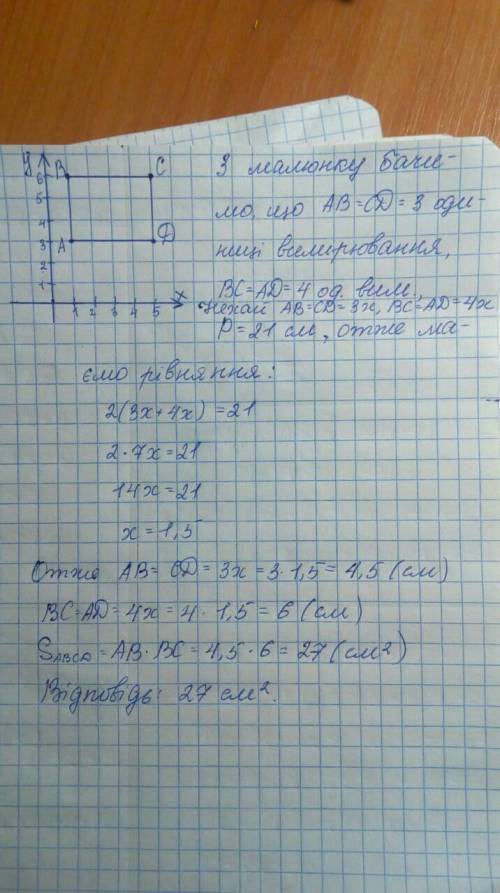 y B C
6
5
4
3 A D
2
1
1 2 3 4 5 x
З малюнку бачи-
мо, що AB=CD=3 оди-
ниці вимірювання,
BC=AD=4 од. вим.
Нехай AB=CD=3x, BC=AD=4x
P=21 см, отже ма-
ємо рівняння:
2(3x+4x)=21
2·7x=21
14x=21
x=1,5
Отже AB=CD=3x=3·1,5=4,5 (см)
BC=AD=4x=4·1,5=6 (см)
SABCD=AB·BC=4,5·6=27 (см²)
Відповідь: 27 см².